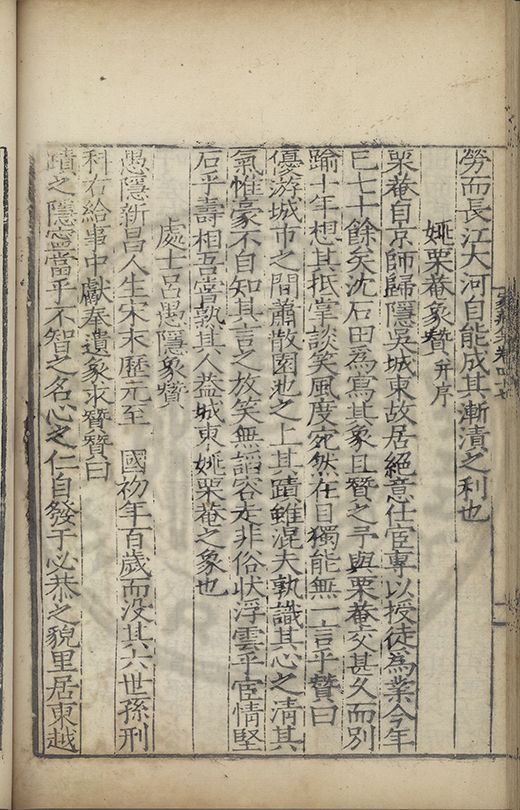 勞而長江大河自能成其漸漬之利也
姚栗菴象贊并序
栗菴自京師歸隱吳城東故居絕意仕宦專以授徒為業今年
已七十餘矣沈石田為寫其象且贊之予與栗菴交甚久而別
踰十年想其抵掌談笑風度宛然在目獨能無一言乎贊曰
優游城市之間蕭散園池之上其蹟雖混夫孰識其心之清其
氣惟豪不自知其言之放笑無謟容走非俗状浮雲乎宦情堅
石乎壽相吾嘗孰其人盖城東姚栗菴之象也
處士呂愚隱象贊
愚隱新昌人生宋末歷元至 國初年百歲而没其六世孫刑
科右給事中獻奉遺象求贊贊曰
蹟之隱甯當乎不智之名心之仁自發于必恭之貌里居東越